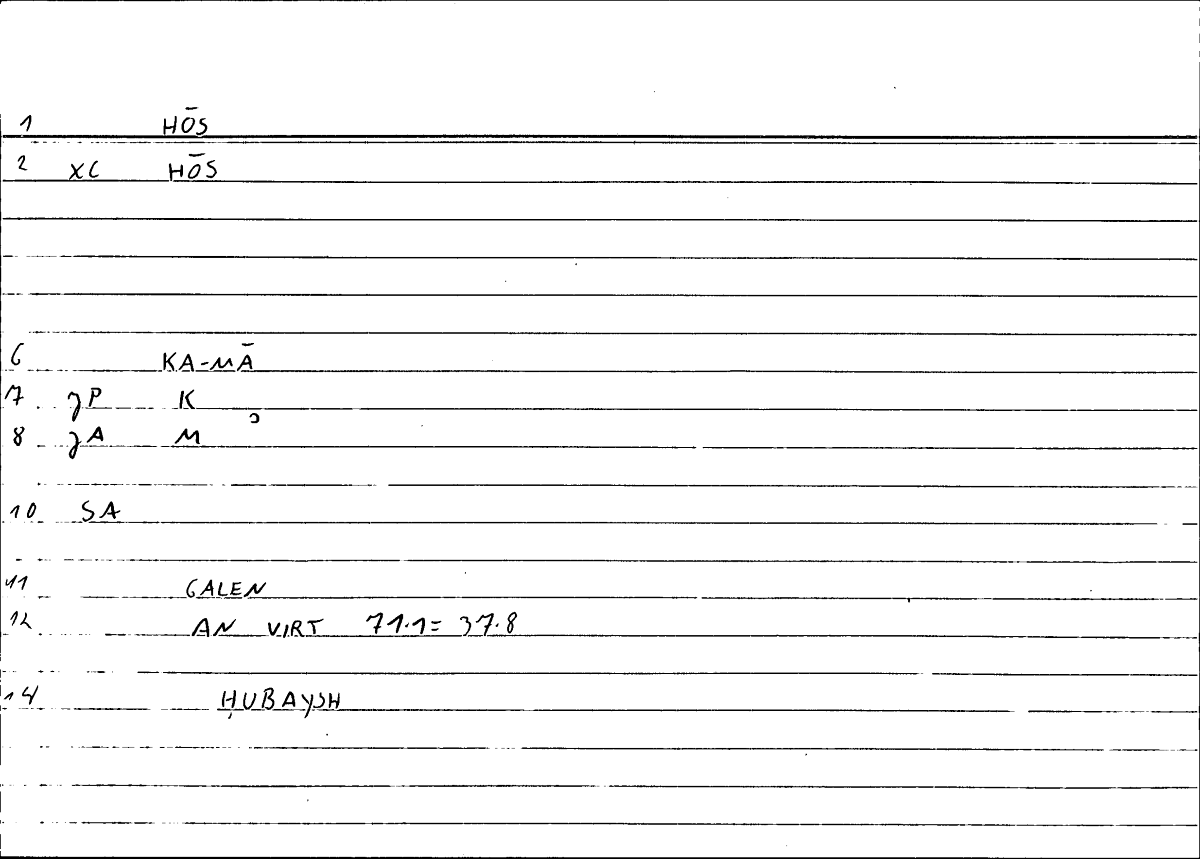 1 HŌS
2 XC HŌS
6 KA-MĀ
7 ȝP K
8 ȝA M
10 SA
11 GALEN
12 AN VIRT 71.1= 37.8
14 ḤUBAYSH